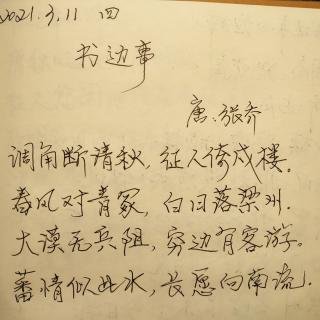 2021.3.11 四
书边事
唐:张乔
调角断清秋，征人倚戍楼。
春风对青冢，白日落梁州.
大漠无兵阻，穷边有客游。
蕃情似此水，长愿向南流.